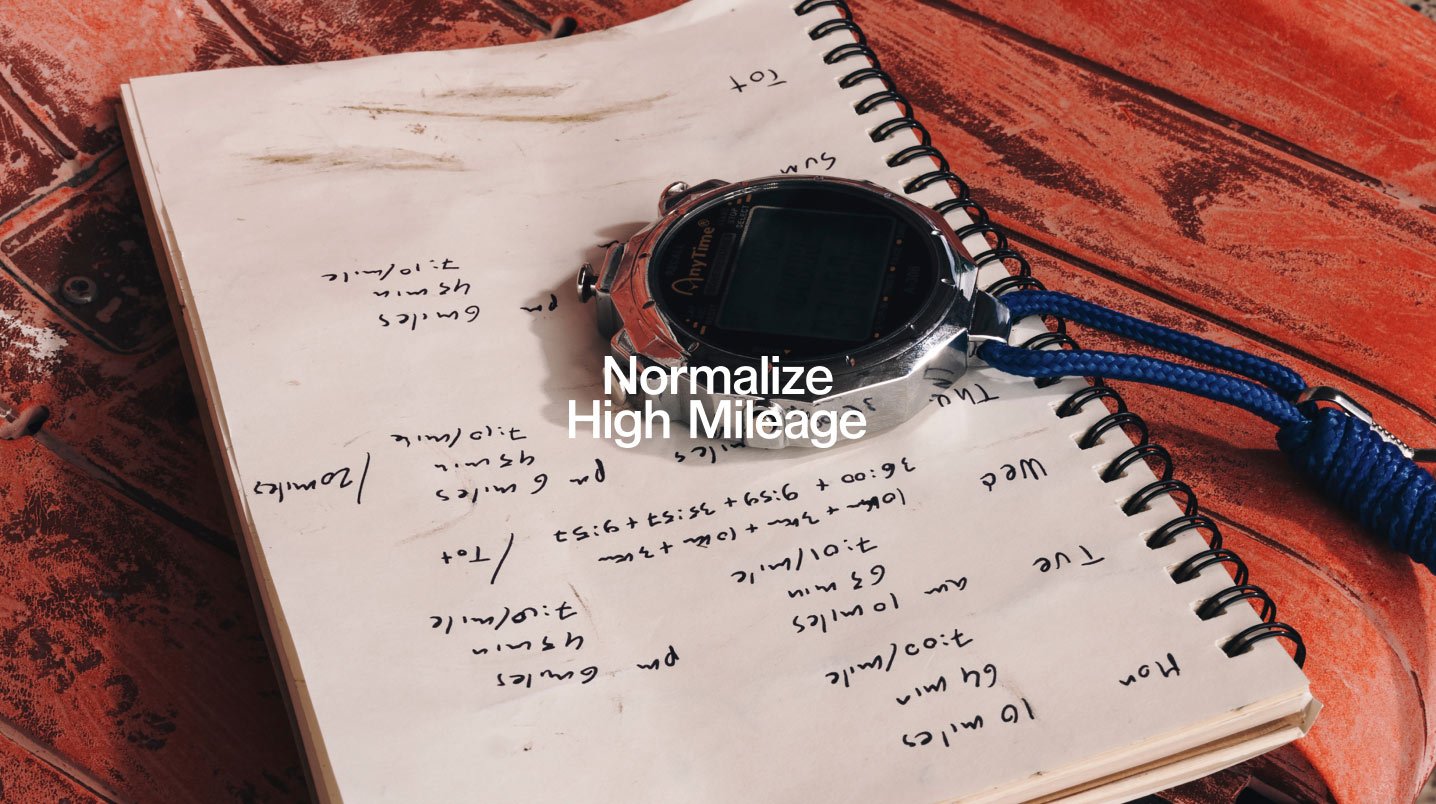 Normalize
High Mileage
AnyTime®
Mon
10 miles
64 min
7:00/mile
pm 6 miles
45 min
7:10/mile
Tue
am 10 miles
63 min
7:01/mile
/Tot
Wed
10km + 3km + 10km + 3km
36:00 + 9:59 + 35:57 + 9:57
pm 6 miles
45 min
7:10/mile
/20miles
Thu
miles
pm 6miles
45 min
7:10/mile
Sun
Tot